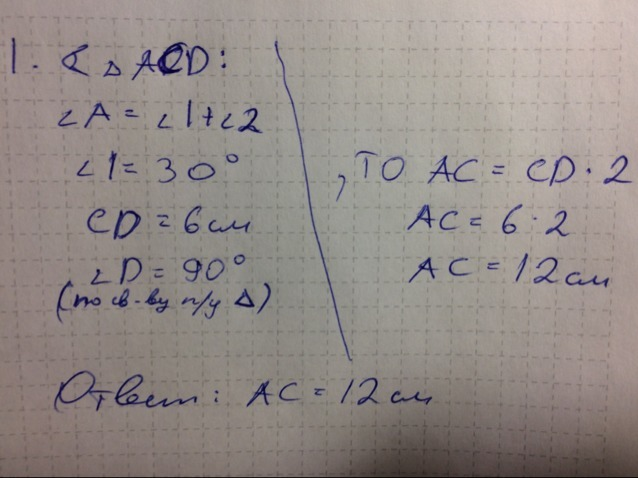 1. < △ ACD:
∠A = ∠1+∠2
∠1 = 30°
CD = 6 см
∠D = 90°
(по св-ву п/у △)
, ТО AC = CD · 2
AC = 6 · 2
AC = 12 см
Ответ: AC = 12 см